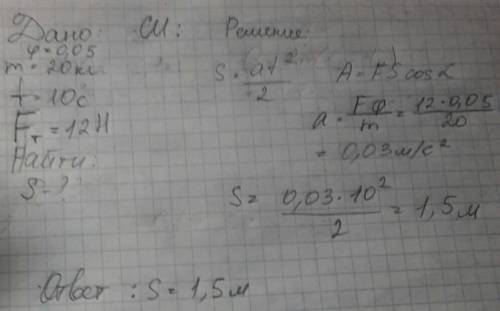 Дано: СИ: Решение:
φ = 0,05
m = 20 кг
t = 10 с
Fт = 12 Н
Найти:
S - ?
S = at²/2 A = FS cos α
a = Fφ/m = 12·0,05/20
= 0,03 м/с²
S = 0,03·10²/2 = 1,5 м
Ответ: S = 1,5 м